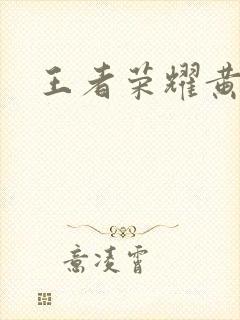 王者荣耀黄
意凌霄